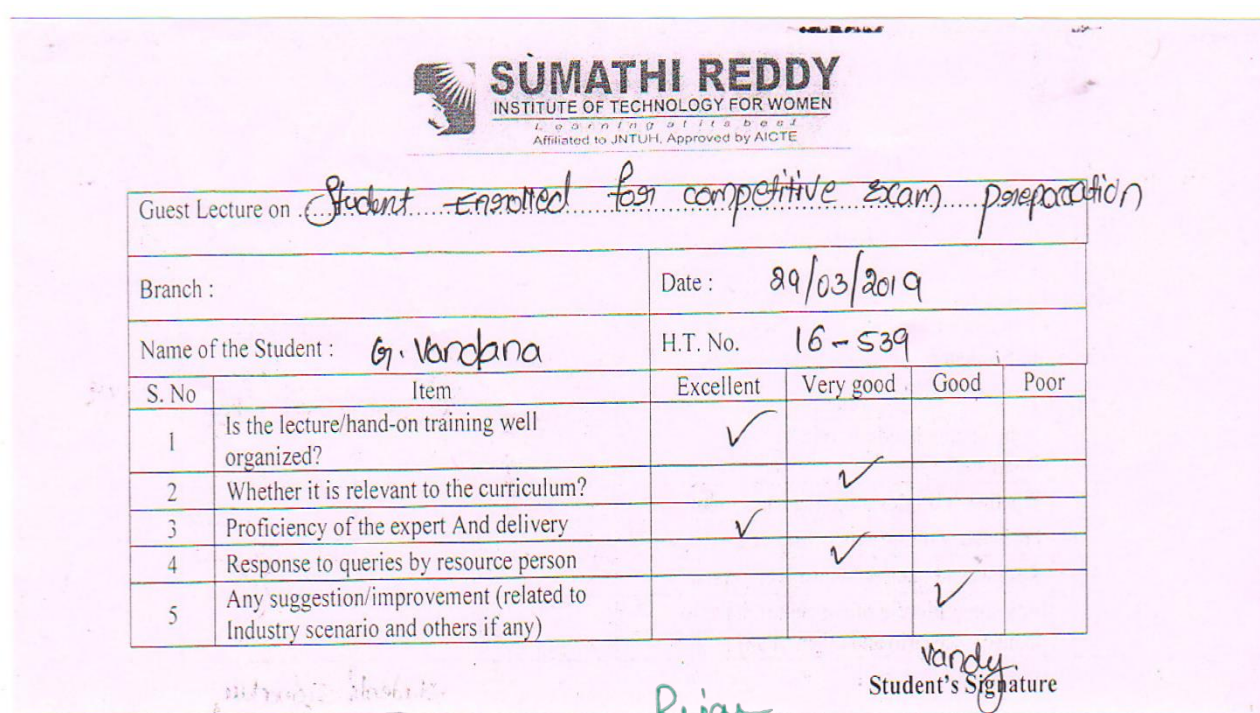 SUMATHI REDDY
INSTITUTE OF TECHNOLOGY FOR WOMEN
Learning at its best
Affiliated to JNTUH, Approved by AICTE
Guest Lecture on Student Enrolled for competitive Exam preparation
Branch : Date : 29/03/2019
Name of the Student : G. Vandana H.T. No. 16-539
S. No Item Excellent Very good Good Poor
1 Is the lecture/hand-on training well
organized? ✓
2 Whether it is relevant to the curriculum? ✓
3 Proficiency of the expert And delivery ✓
4 Response to queries by resource person ✓
5 Any suggestion/improvement (related to
Industry scenario and others if any) ✓
Vandy
Student's Signature